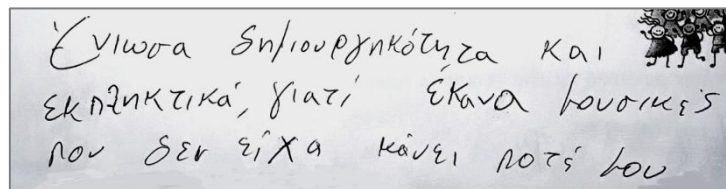 Ένιωσα δημιουργηκότητα και
εκπληκτικά, γιατί έκανα μουσικές
που δεν είχα κάνει ποτέ μου